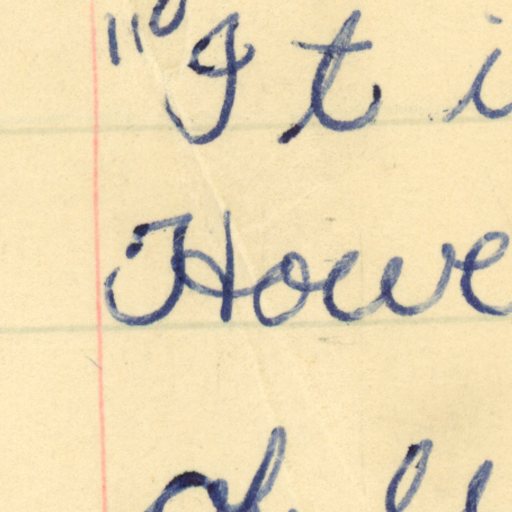 "It i
Howe